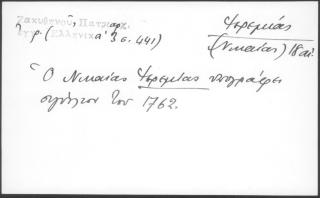 Ζακυθηνοῦ, Πατριαρχ.
ἔγγρ. (Ἑλληνικὰ 3, σ. 441)
Ἱερεμίας
(Νικαίας) 18 αἰ.
Ὁ Νικαίας Ἱερεμίας ὑπογράφει
σιγίλλιον τοῦ 1762.